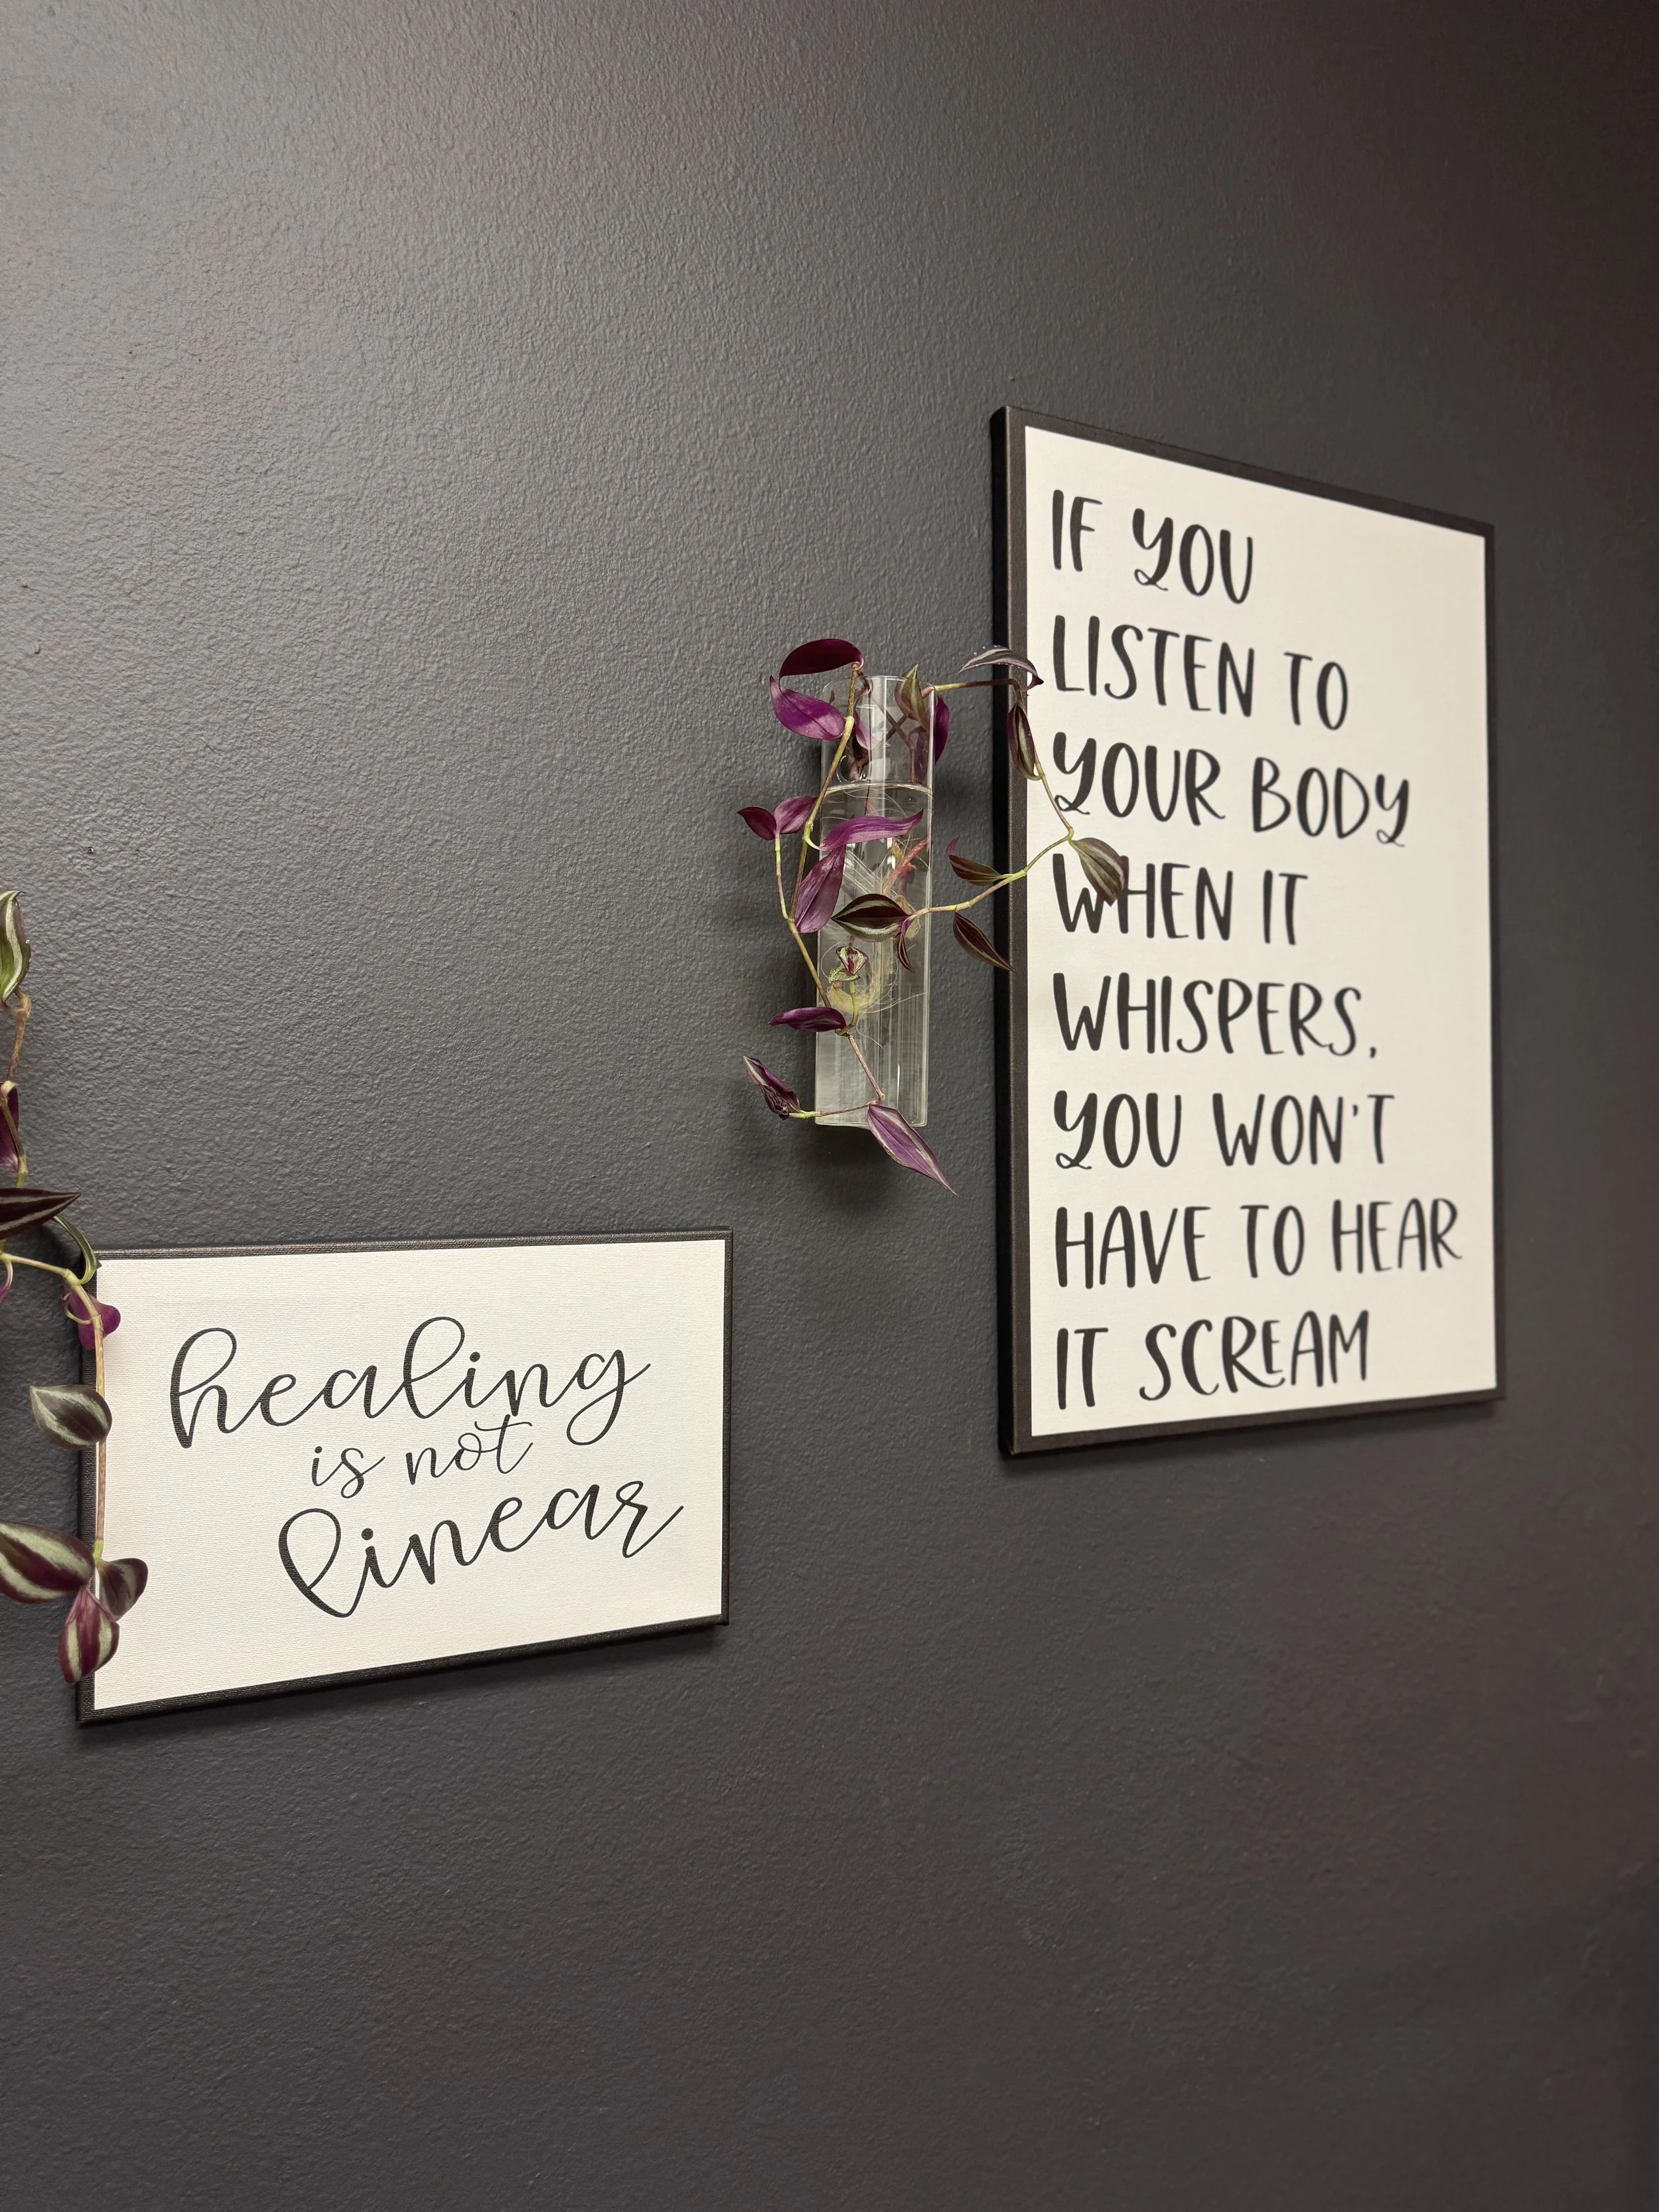 healing
is not
linear
IF YOU
LISTEN TO
YOUR BODY
WHEN IT
WHISPERS,
YOU WON'T
HAVE TO HEAR
IT SCREAM